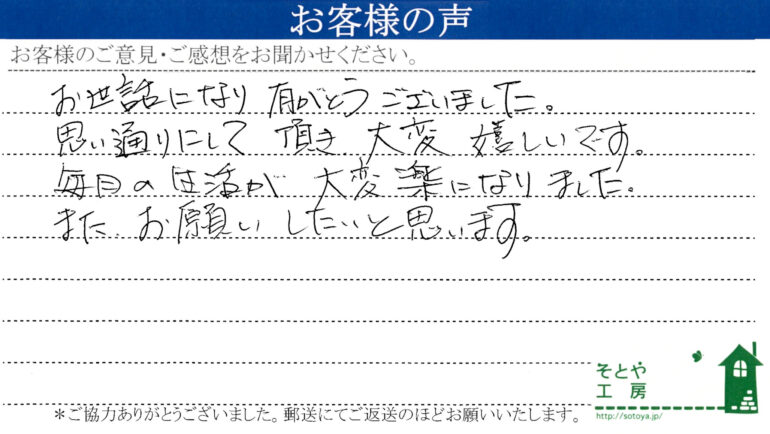 お客様の声
お客様のご意見・ご感想をお聞かせください。
お世話になり 有がとうございました。
思い通りにして 頂き 大変 嬉しいです。
毎日の生活が 大変楽になりました。
また、お願いしたいと思います。
そとや
工房
http://sotoya.jp/
＊ご協力ありがとうございました。郵送にてご返送のほどお願いいたします。